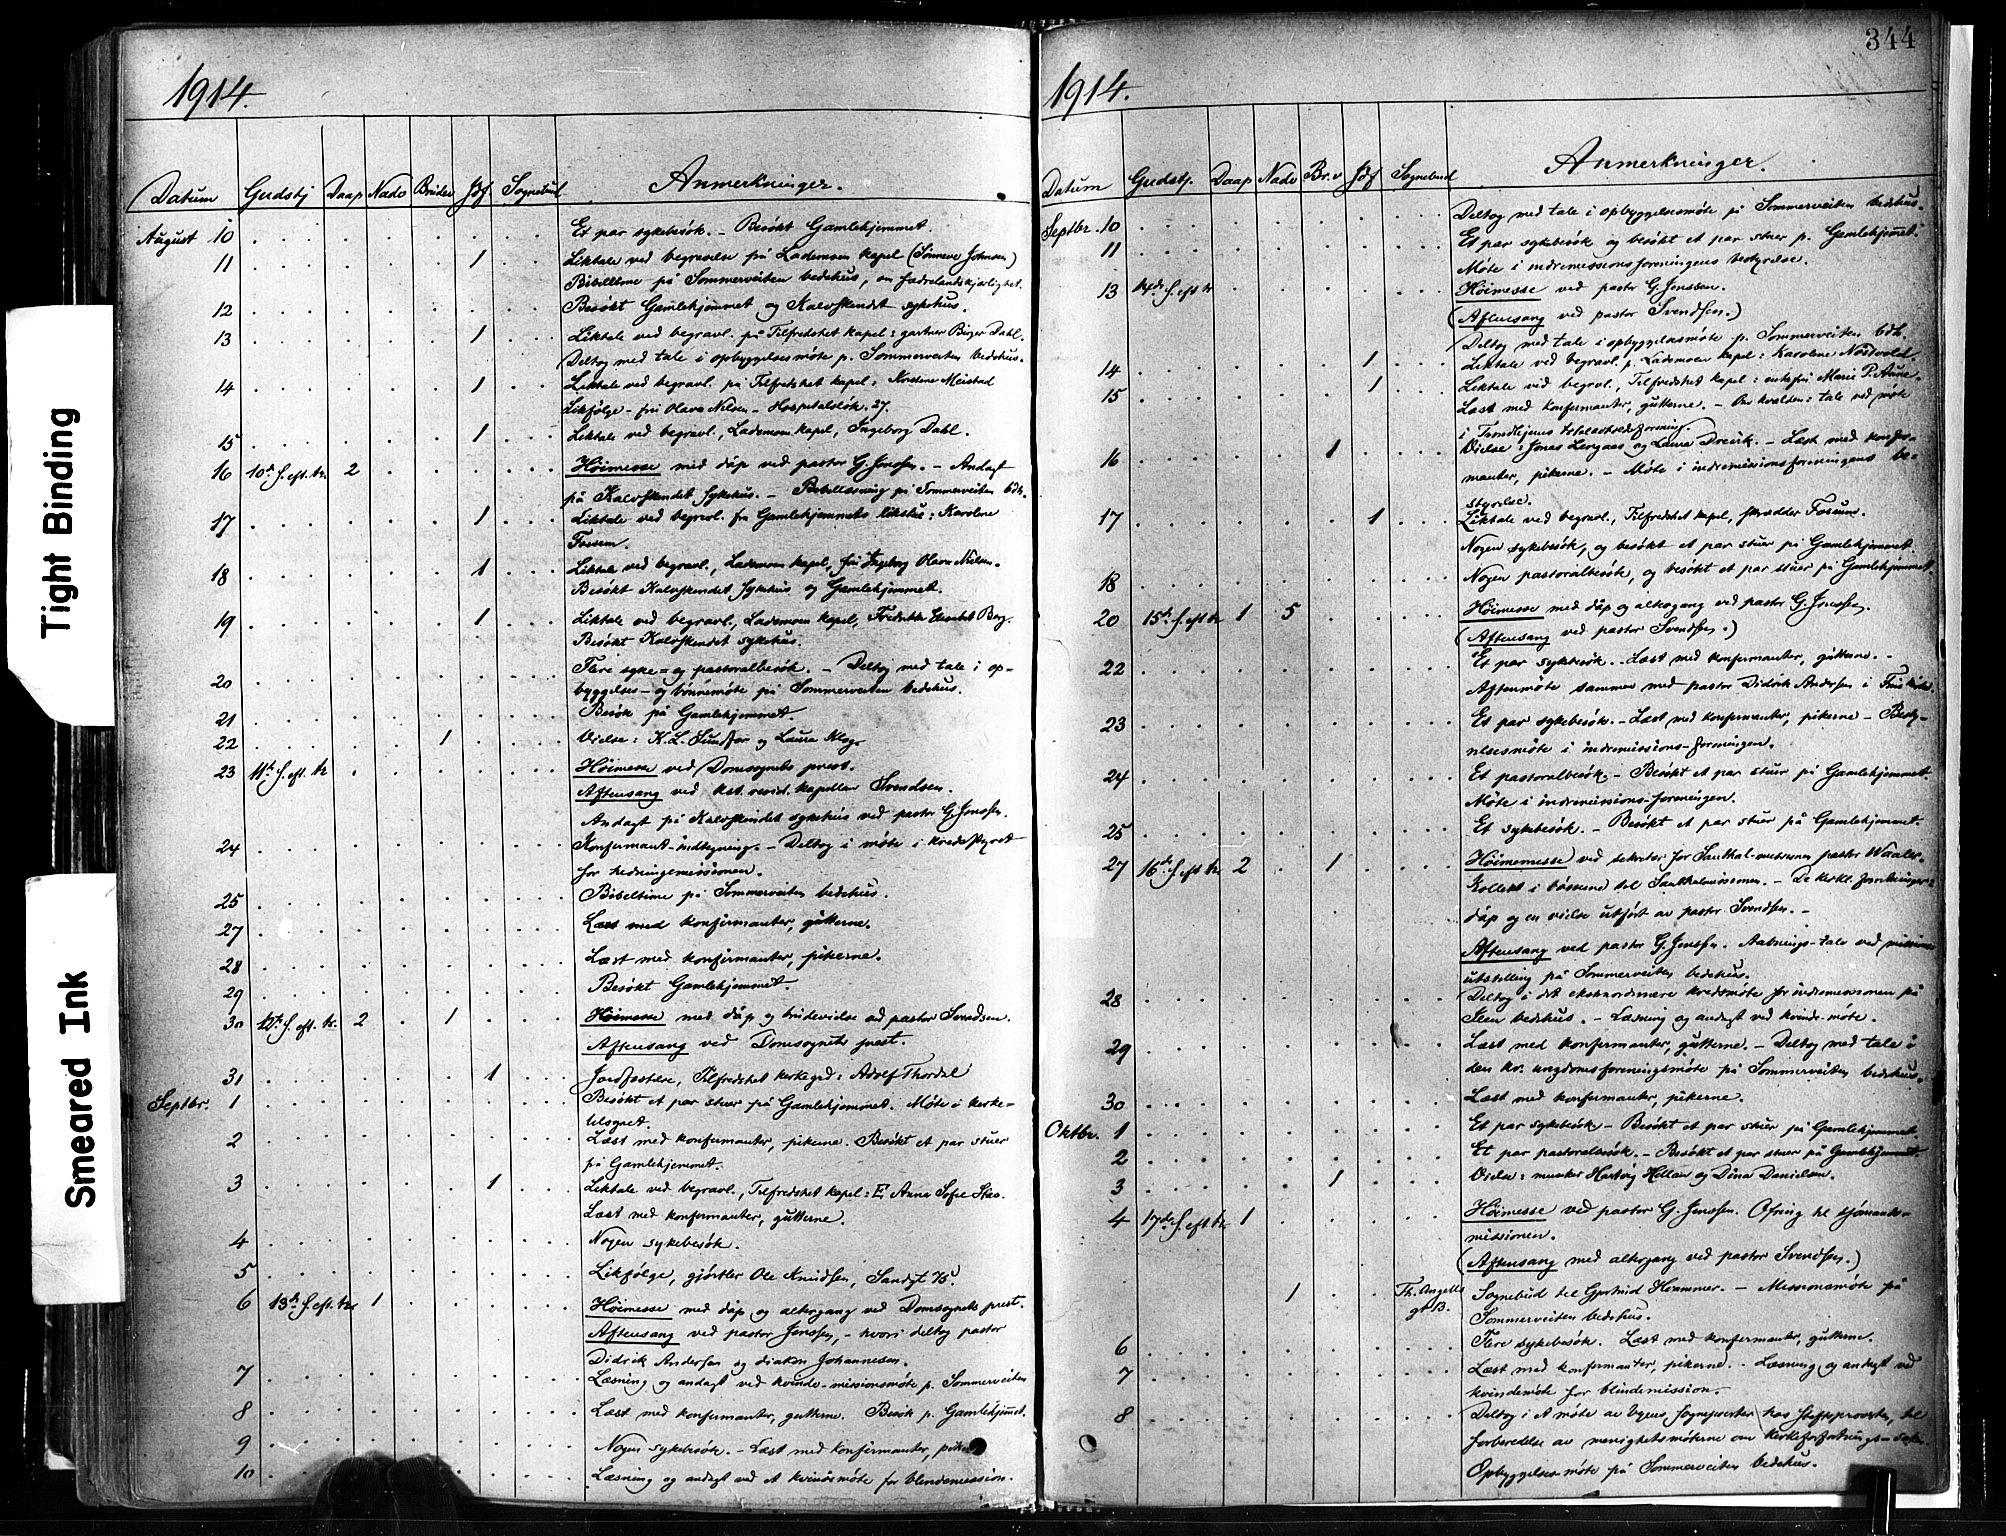 344
1914.
Datum Gudstj Daap Nadv Brudev Jdf Sognebud Anmerkninger.
August 10 Et par sykebesök. – Besökt Gamlehjemmet.
11 1 Liktale ved begravelse på Lademoen kapel (Sönneve Johnsen)
Bibeltime på Sommerveiten bedehus, om fædrelandskjærlighet.
12 Besökt Gamlehjemmet og Kalvskindet sykehus.
13 1 Liktale ved begravl. på Tilfredshet kapel: gartner Birger Dahl.
Deltog med tale i opbyggelsesmöte p. Sommerveiten bedehus.
14 1 Liktale ved begravl. på Tilfredshet kapel: Meistad
Likfölge – fru Olava Nilsen – Hospitalslök. 27.
15 1 Liktale ved begravl., Lademoen kapel, Ingeborg Dahl.
16 10d S. eft. tr. 2 Höimesse med dåp ved pastor G. Jenssen. – Andagt
på Kalvskindet sykehus. – Bibellæsning på Sommerveiten bdh.
17 1 Liktale ved begravl. fra Gamlehjemmets likstue: Karoline
Fossem.
18 1 Liktale ved begravl., Lademoen kapel, fru Ingeborg Olava Nilsen.
Besökt Kalvskindet sykehus og Gamlehjemmet.
19 1 Liktale ved begravl., Lademoen kapel, Fredrikke Berg.
Besökt Kalvskindet sykehus.
20 Flere syke- og pastoralbesök. – Deltog med tale i op-
byggelses- og bönnemöte på Sommerveiten bedehus.
21 Besök på Gamlehjemmet.
22 1 Vielse: K. L. og Laura
23 11th S. eft. tr Höimesse ved Domsognets prest.
Aftensang ved kst. resid. kapellan Svendsen.
Andagt på Kalvskindet sykehus ved pastor G. Jenssen.
24 Konfirmant-indtegning. – Deltog i möte i kredsstyret
for hedningemissionen.
25 Bibeltime på Sommerveiten bedehus.
27 Læst med konfirmanter, gutterne.
28 Læst med konfirmanter, pikerne.
29 Besökt Gamlehjemmet
30 12te S. eft. tr. 2 1 Höimesse med dåp og brudevielse ved pastor Svendsen.
Aftensang ved Domsognets prest.
31 1 Jordfæstelse, Tilfredshet kirkegrd: Adolf Thordal
Septbr. 1 Besökt et par stuer på Gamlehjemmet. Möte i kirke-
tilsynet.
2 Læst med konfirmanter, pikerne. Besökt et par stuer
på Gamlehjemmet.
3 1 Liktale ved begravl., Tilfredshet kapel: E. Anna Sofie
Læst med konfirmanter, gutterne.
4 Nogen sykebesök.
5 Likfölge, gjörtler Ole Knudsen, Sandgt 75.
6 13th S. eft. tr 1 Höimesse med dåp og altergang ved Domsognets prest.
Aftensang ved pastor Jenssen, – hvori deltog pastor
Didrik Andersen og diakon Johannesen.
7 Læsning og andagt ved kvinde-missionsmöte p. Sommerveiten
8 Læst med konfirmanter, gutterne. Besök p. Gamlehjemmet.
9 Nogen sykebesök. – Læst med konfirmanter,
10 Læsning og andagt ved et kvindemöte for blindemission.
1914.
Datum Gudstj. Daap Nadv Br.v Jdf Sognebud Anmerkninger.
Septbr. 10 Deltog med tale i opbyggelsesmöte på Sommerveiten bedehus.
11 Et par sykebesök og besökt et par stuer p. Gamlehjemmet.
Möte i indremissionsforeningens bestyrelse.
13 14de S. eft tr Höimesse ved pastor G. Jenssen.
(Aftensang ved pastor Svendsen.)
Deltog med tale i opbyggelsesmöte p. Sommerveiten bdh.
14 1 Liktale ved begravl. p. Lademoen kapel: Karoline Nordvold.
15 1 Liktale ved begravl., Tilfredshet kapel: enkefru Marie P. Aune.
Læst med konfirmanter, gutterne. – Om kvælden: tale ved möte
i Trondhjems totalavholdsforening.
16 1 Vielse: Jonas Lergaas og Laura – Læst med konfir-
manter, pikerne. – Möte i indremissionsforeningens be-
styrelse.
17 1 Liktale ved begravl., Tilfredshet kapel, skrædder Fossum.
Nogen sykebesök, og besökt et par stuer på Gamlehjemmet.
18 Nogen pastoralbesök, og besökt et par stuer på Gamlehjemmet.
20 15de S. eft tr 1 5 Höimesse med dåp og altergang ved pastor G. Jenssen.
(Aftensang ved pastor Svendsen.)
22 Et par sykebesök. – Læst med konfirmanter, gutterne. –
Aftenmöte sammen med pastor Didrik Andersen i
23 Et par sykebesök. – Læst med konfirmanter, pikerne – Besty-
relsesmöte i indremissions-foreningen.
24 Et pastoralbesök. – Besökt et par stuer på Gamlehjemmet.
Möte i indremissions-foreningen.
25 Et sykebesök. – Besökt et par stuer på Gamlehjemmet.
27 16de S. eft tr. 2 1 Höimemesse ved sekretær for Santhal-missionen pastor Waaler.
Kollekt i bössene til Santhalmissionen. – De kirkl. forretninger:
dåp og en vielse utfört av pastor Svendsen. –
Aftensang ved pastor G. Jenssen. Aabnings-tale ved missions-
utstilling på Sommerveiten bedehus.
28 Deltog i det ekstraordinære kredsmöte for indremissionen på
Ilen bedehus. – Læsning og andagt ved kvinde-möte.
29 Læst med konfirmanter, gutterne. – Deltog med tale i
den kr. ungdomsforeningsmöte på Sommerveiten bedehus.
30 Læst med konfirmanter, pikerne.
Oktbr. 1 Et par sykebesök – Besökt et par stuer på Gamlehjemmet.
2 Et par pastoralbesök. – Besökt et par stuer på Gamlehjemmet
3 1 Vielse: Hartvig Hellan og Dina Danielsen.
4 17de S. eft tr. 1 Höimesse ved pastor G. Jenssen. Ofring til sjömands-
missionen.
(Aftensang med altergang ved pastor Svendsen.)
1 Th. Angells Sognebud til Gjertrud Hammer. – Missionsmöte på
gt B. Sommerveiten bedehus.
6 Flere sykebesök. Læst med konfirmanter, gutterne.
7 Læst med konfirmanter, pikerne. – Læsning og andagt ved
kvindemöte for blindemission.
8 Deltog i et möte av byens sogneprester hos stiftsprovsten, til
forberedelse av menighetsmöterne om kirkeforfatnings-saken.
Opbyggelsesmöte på Sommerveiten bedehus.
Tight Binding
Smeared Ink